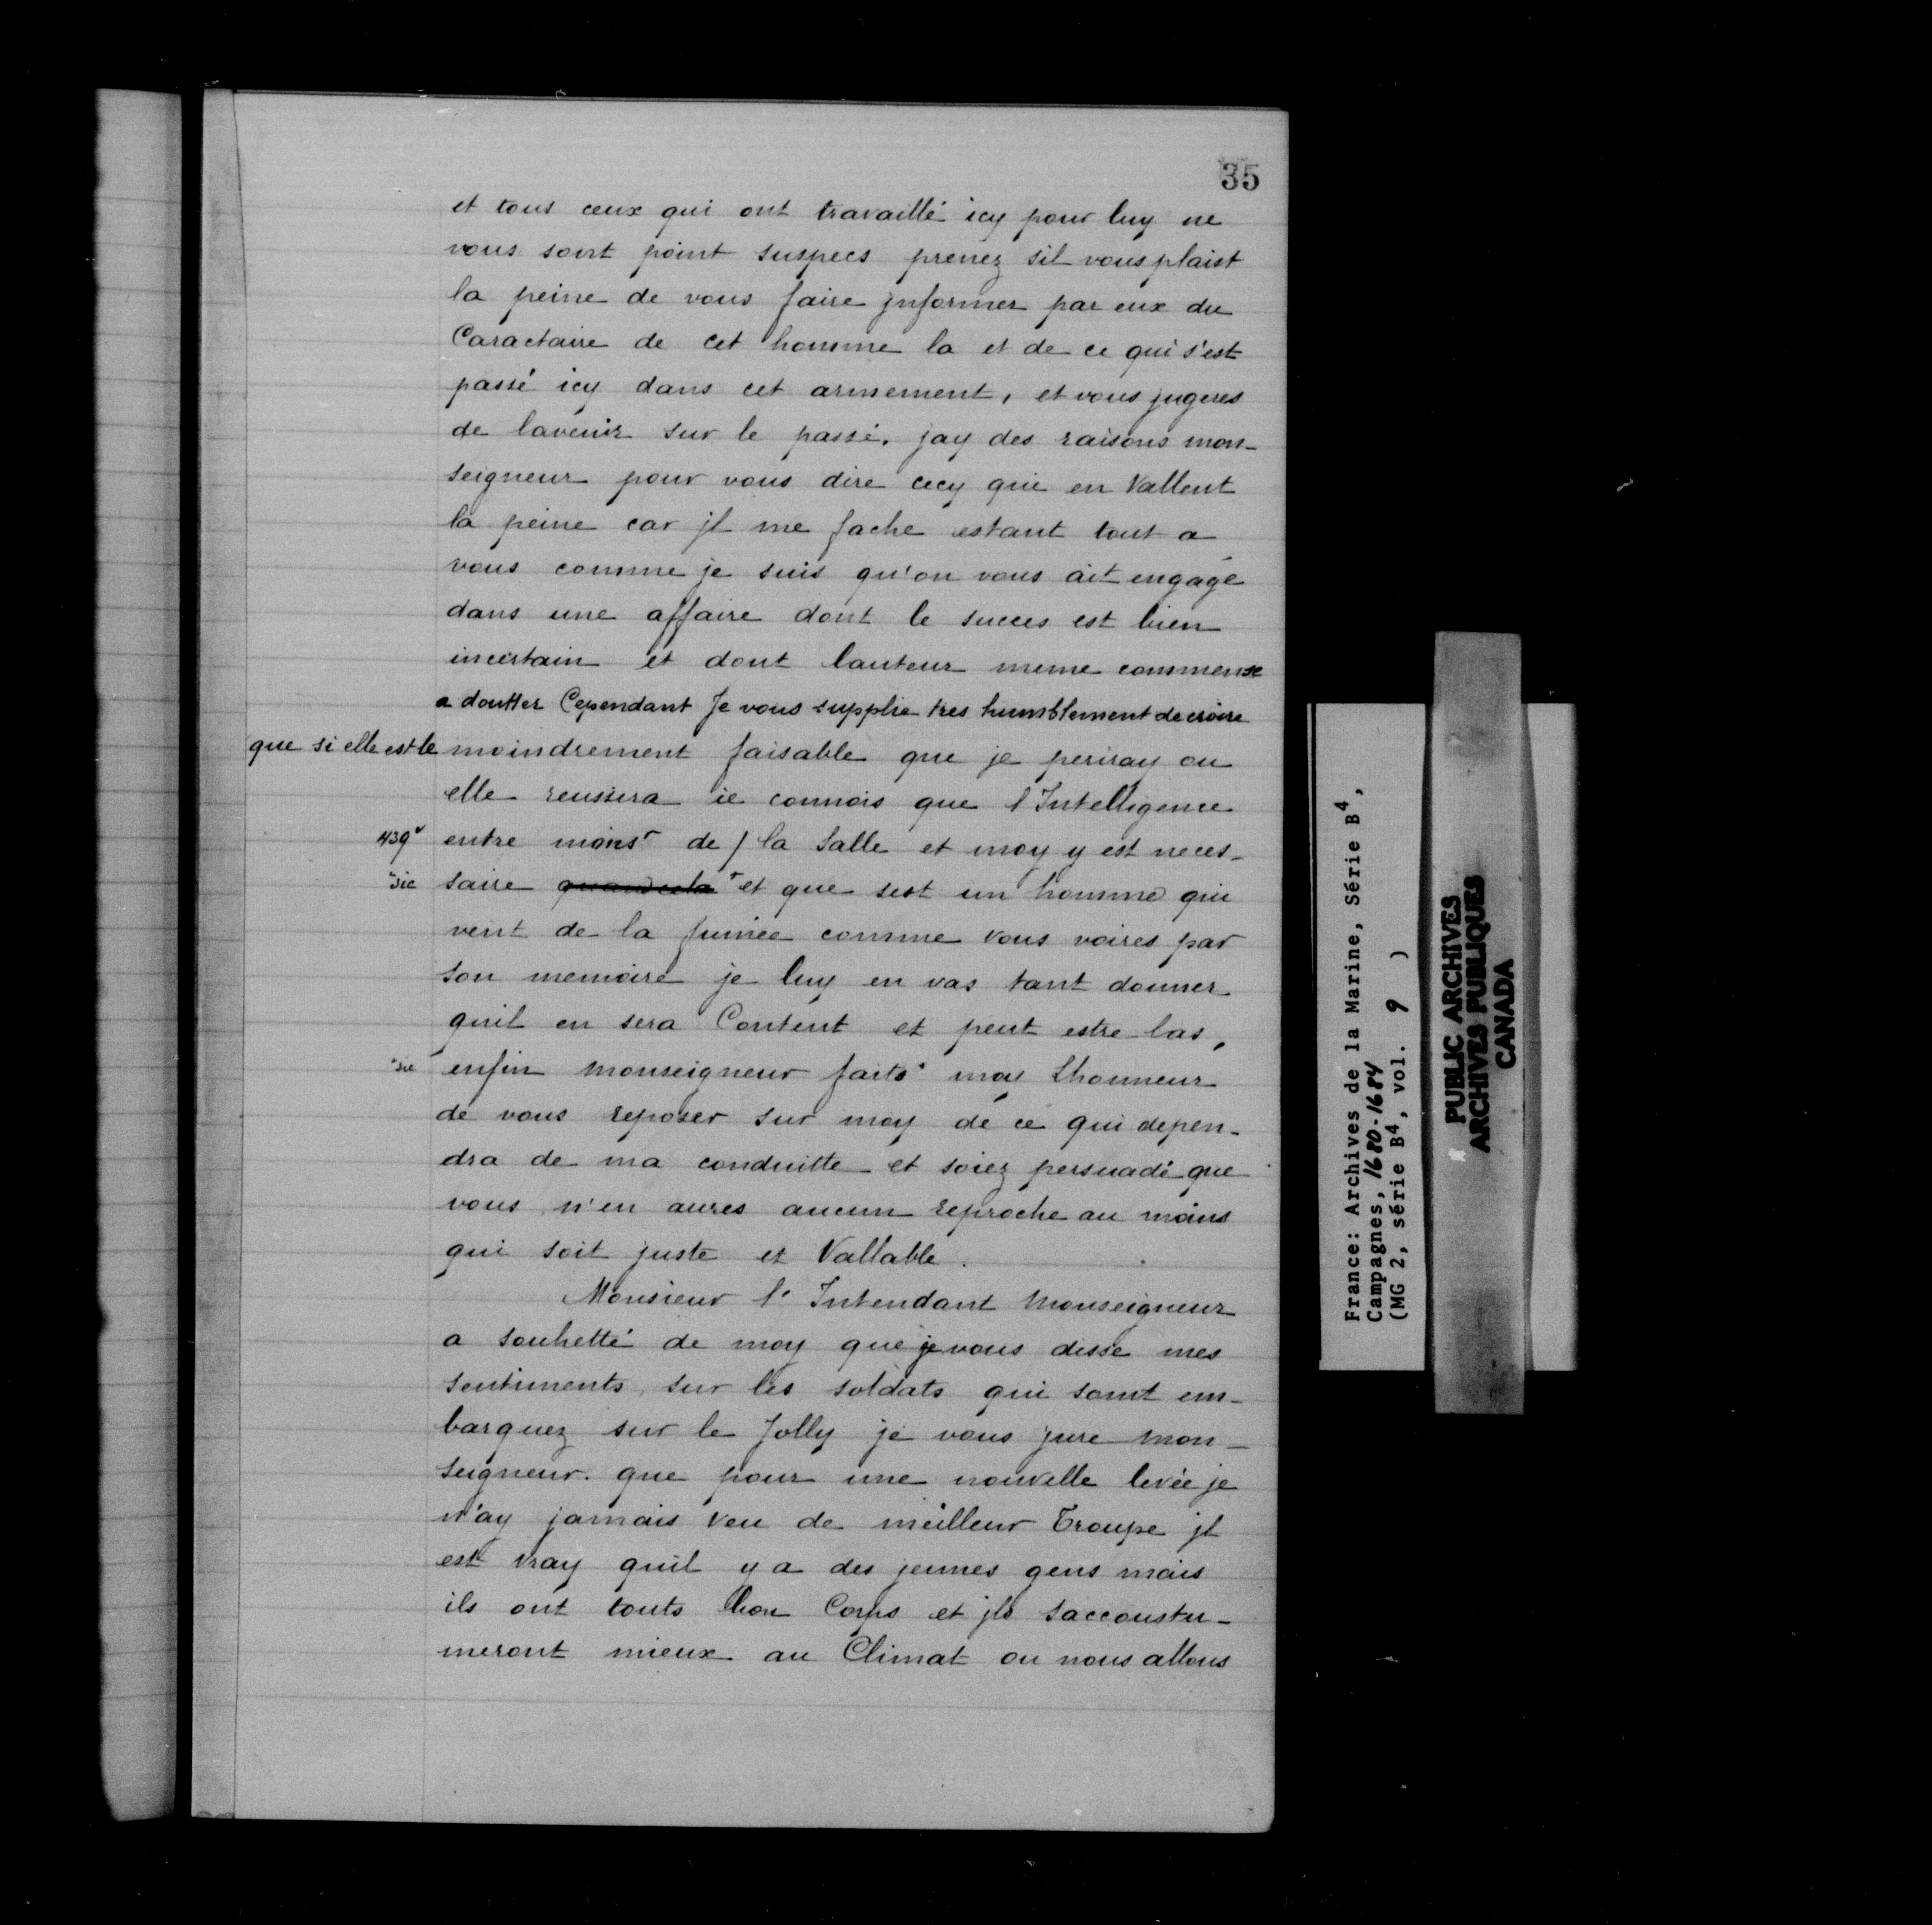 35
et tous ceux qui ont travaillé icy pour luy ne
vous sont point suspecs prenez sil vous plaist
la peine de vous faire jnformer par eux du
Caractaire de cet homme la et de ce qui s'est
passé icy dans cet armement, et vous jugeres
de lavenir sur le passé, jay des raisons mon-
seigneur pour vous dire cecy qui en Vallent
la peine car jl me fache estant tout a
vous comme je suis qu'on vous ait engagé
dans une affaire dont le succes est bien
incertain et dont lauteur meme commense
a doutter Cependant Je vous supplie tres humblement de croire
que si elle est le moindrement faisable que je periray ou
elle reussira ie connois que l'Intelligence
439v entre mons r de / la Salle et moy y est neces-
sic saire quand cela et que sest un homme qui
veut de la fumée comme vous voires par
son memoire je luy en vas tant donner
quil en sera Content et peut estre las,
sic enfin monseigneur faits moy Lhonneur
de vous reposer sur moy de ce qui depen-
dra de ma conduitte et soiez persuadé que
vous n'en aures aucun reproche au moins
qui soit juste et Vallable.
Monsieur l'Intendant monseigneur
a souhetté de moy que je vous disse mes
sentiments sur les soldats qui somt em-
barquez sur le Jolly je vous jure mon-
seigneur. que pour une nouvelle levée je
n'ay jamais veu de meilleur Troupe jl
est vray quil y a des jeunes gens mais
ils ont touts bon Corps et jls saccoustu-
meront mieux au Climat ou nous allons
France: Archives de la Marine, Série B4,
Campagnes, 1680-1684
(MG 2, série B4, vol. 9 )
PUBLIC ARCHIVES
ARCHIVES PUBLIQUES
CANADA